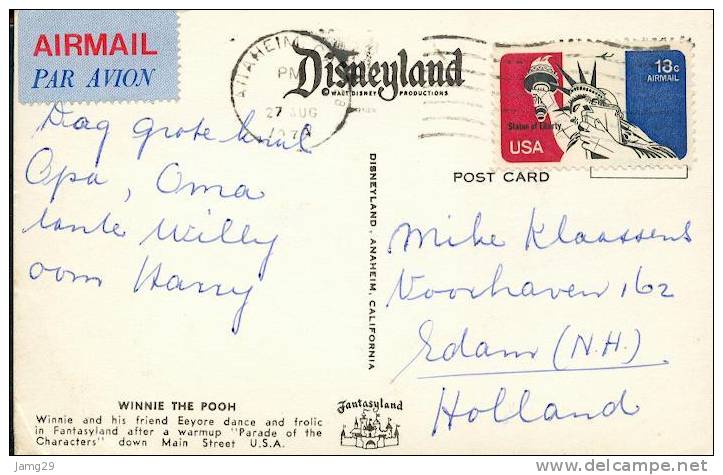 AIRMAIL
PAR AVION
ANAHEIM,
PM
27 AUG
Disneyland
© WALT DISNEY PRODUCTIONS
13c
AIRMAIL
Statue of Liberty
USA
POST CARD
Dag grote knul
Opa, Oma
tante Willy
oom Harry
DISNEYLAND, ANAHEIM, CALIFORNIA
Mike Klaassens
Voorhaven 162
Edam (N.H.)
Holland
WINNIE THE POOH
Winnie and his friend Eeyore dance and frolic
in Fantasyland after a warmup "Parade of the
Characters" down Main Street U.S.A.
Fantasyland
jamg29
www.delcampe.net